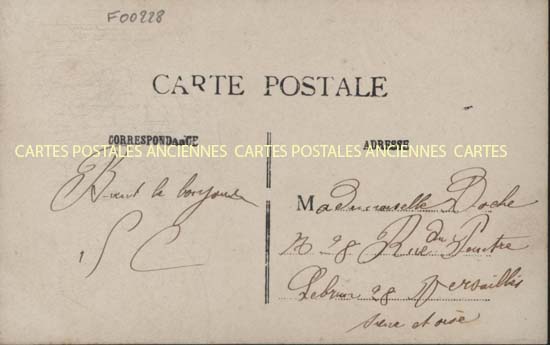 F00228
CARTE POSTALE
CORRESPONDANCE
ADRESSE
CARTES POSTALES ANCIENNES CARTES POSTALES ANCIENNES CARTES
le bonjour
S C
Mademoiselle Doche
N 28 Rue du Peintre
Lebrun 28 Versailles
Seine et oise